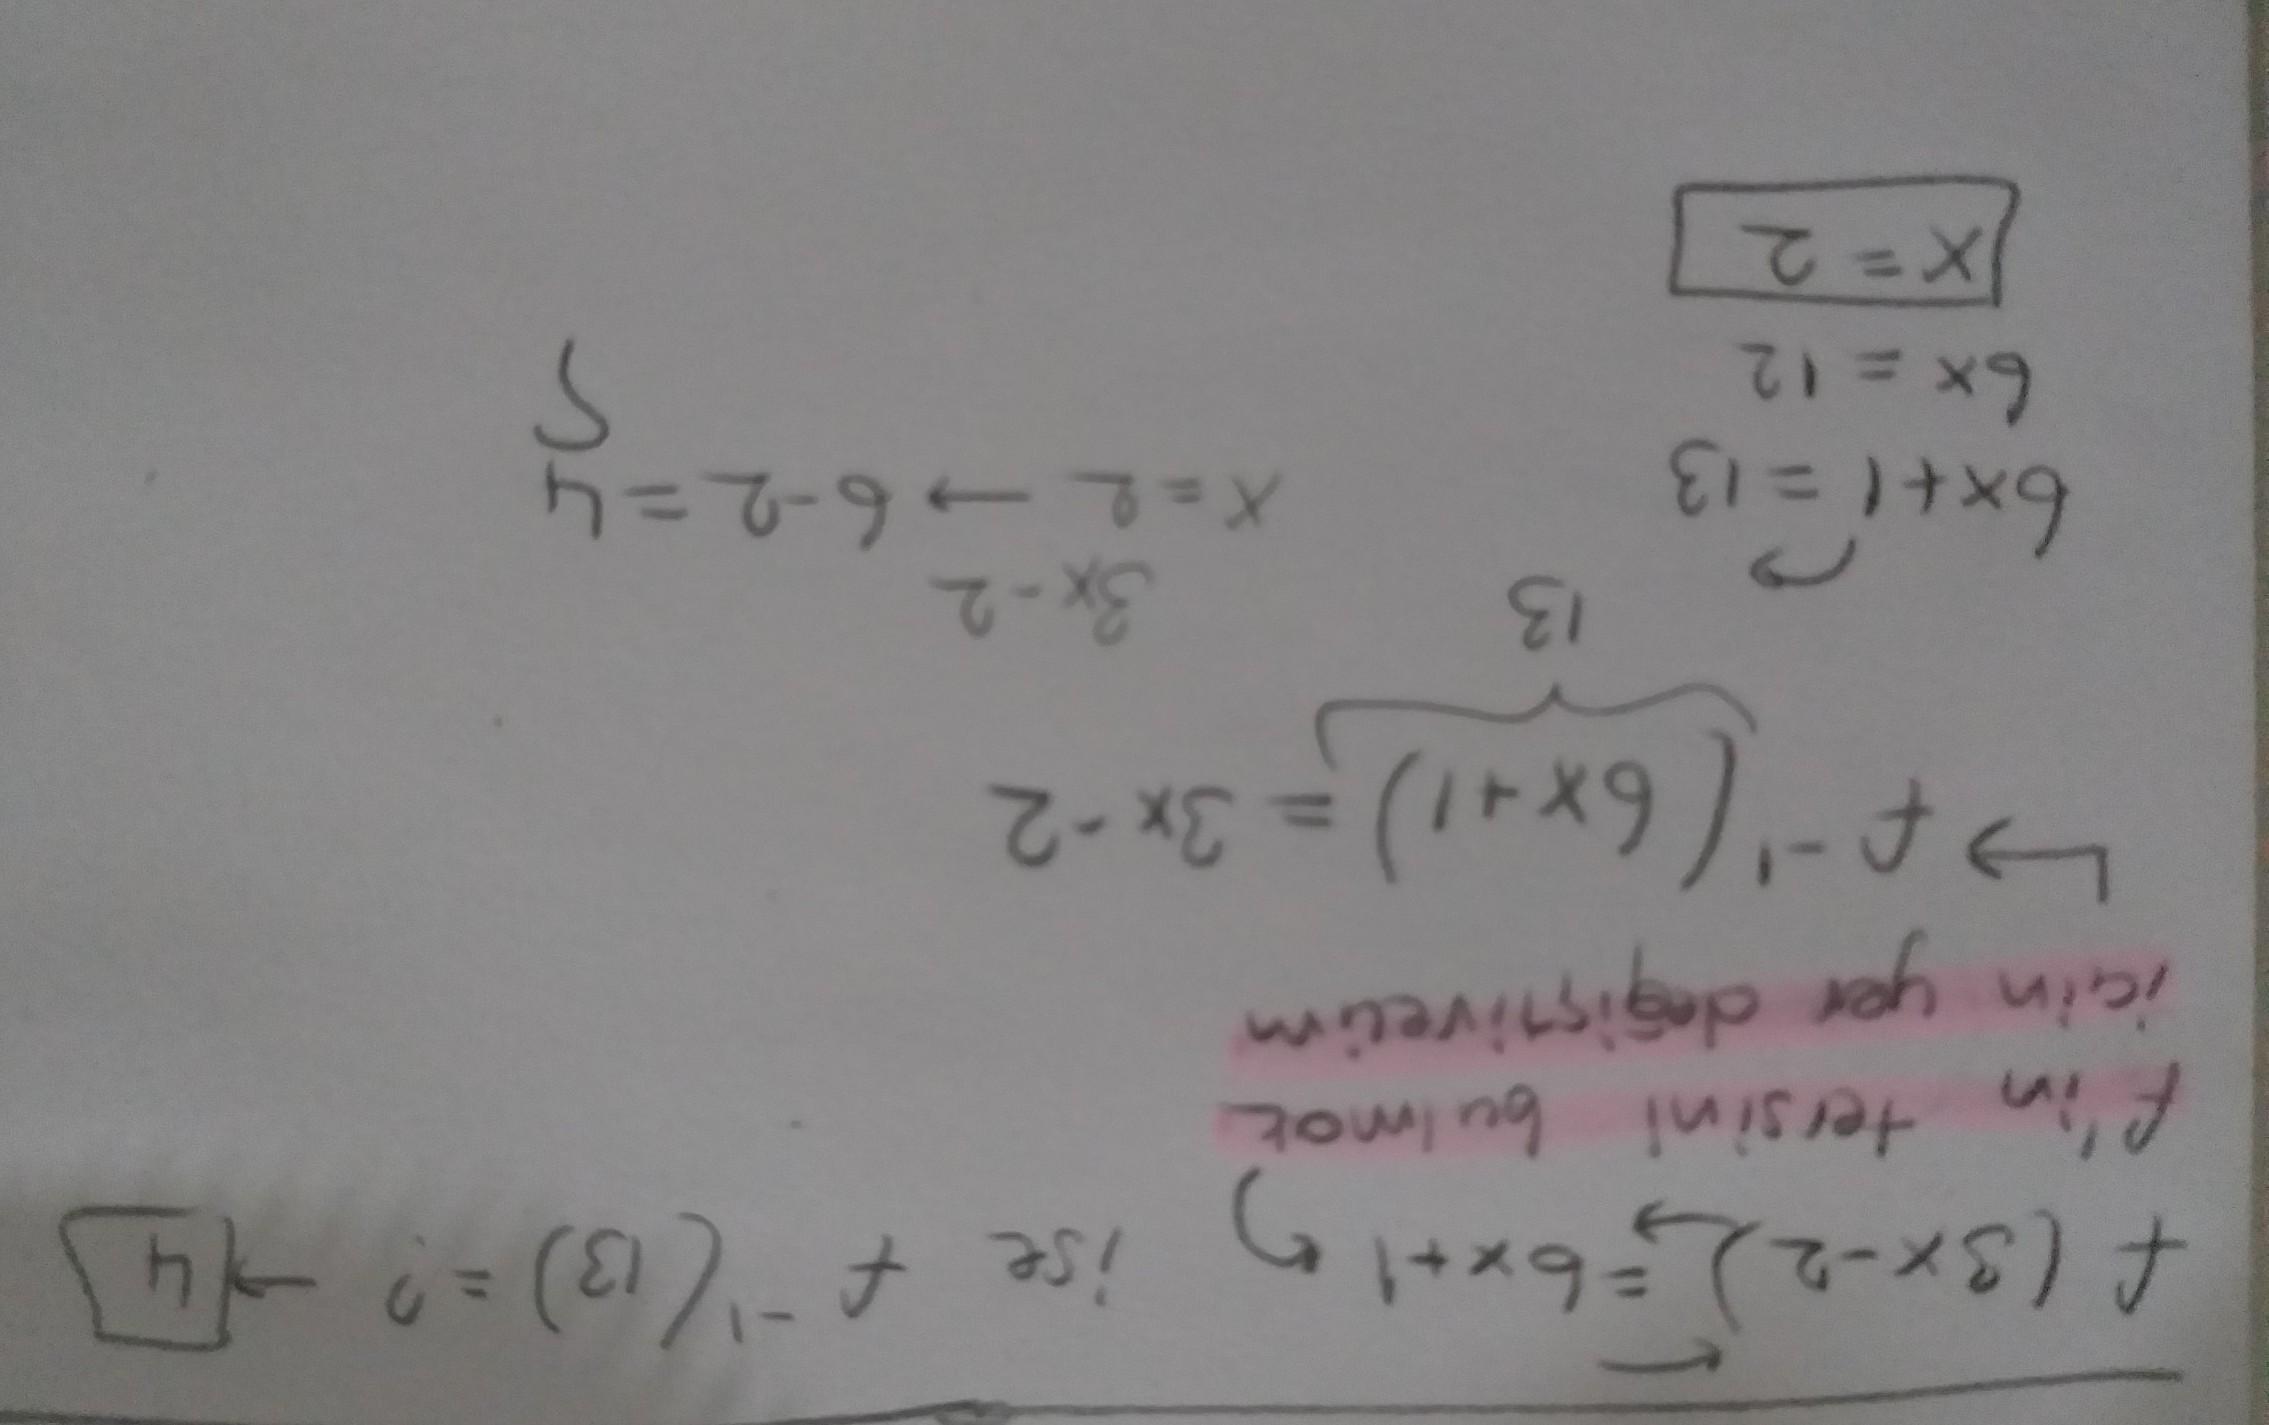 f(3x-2)=6x+1 ise f⁻¹(13)=? → 4
f'in tersini bulmak
için yer değiştirelim
↳ f⁻¹(6x+1) = 3x-2
13
6x+1=13
6x=12
x=2
3x-2
x=2 → 6-2=4